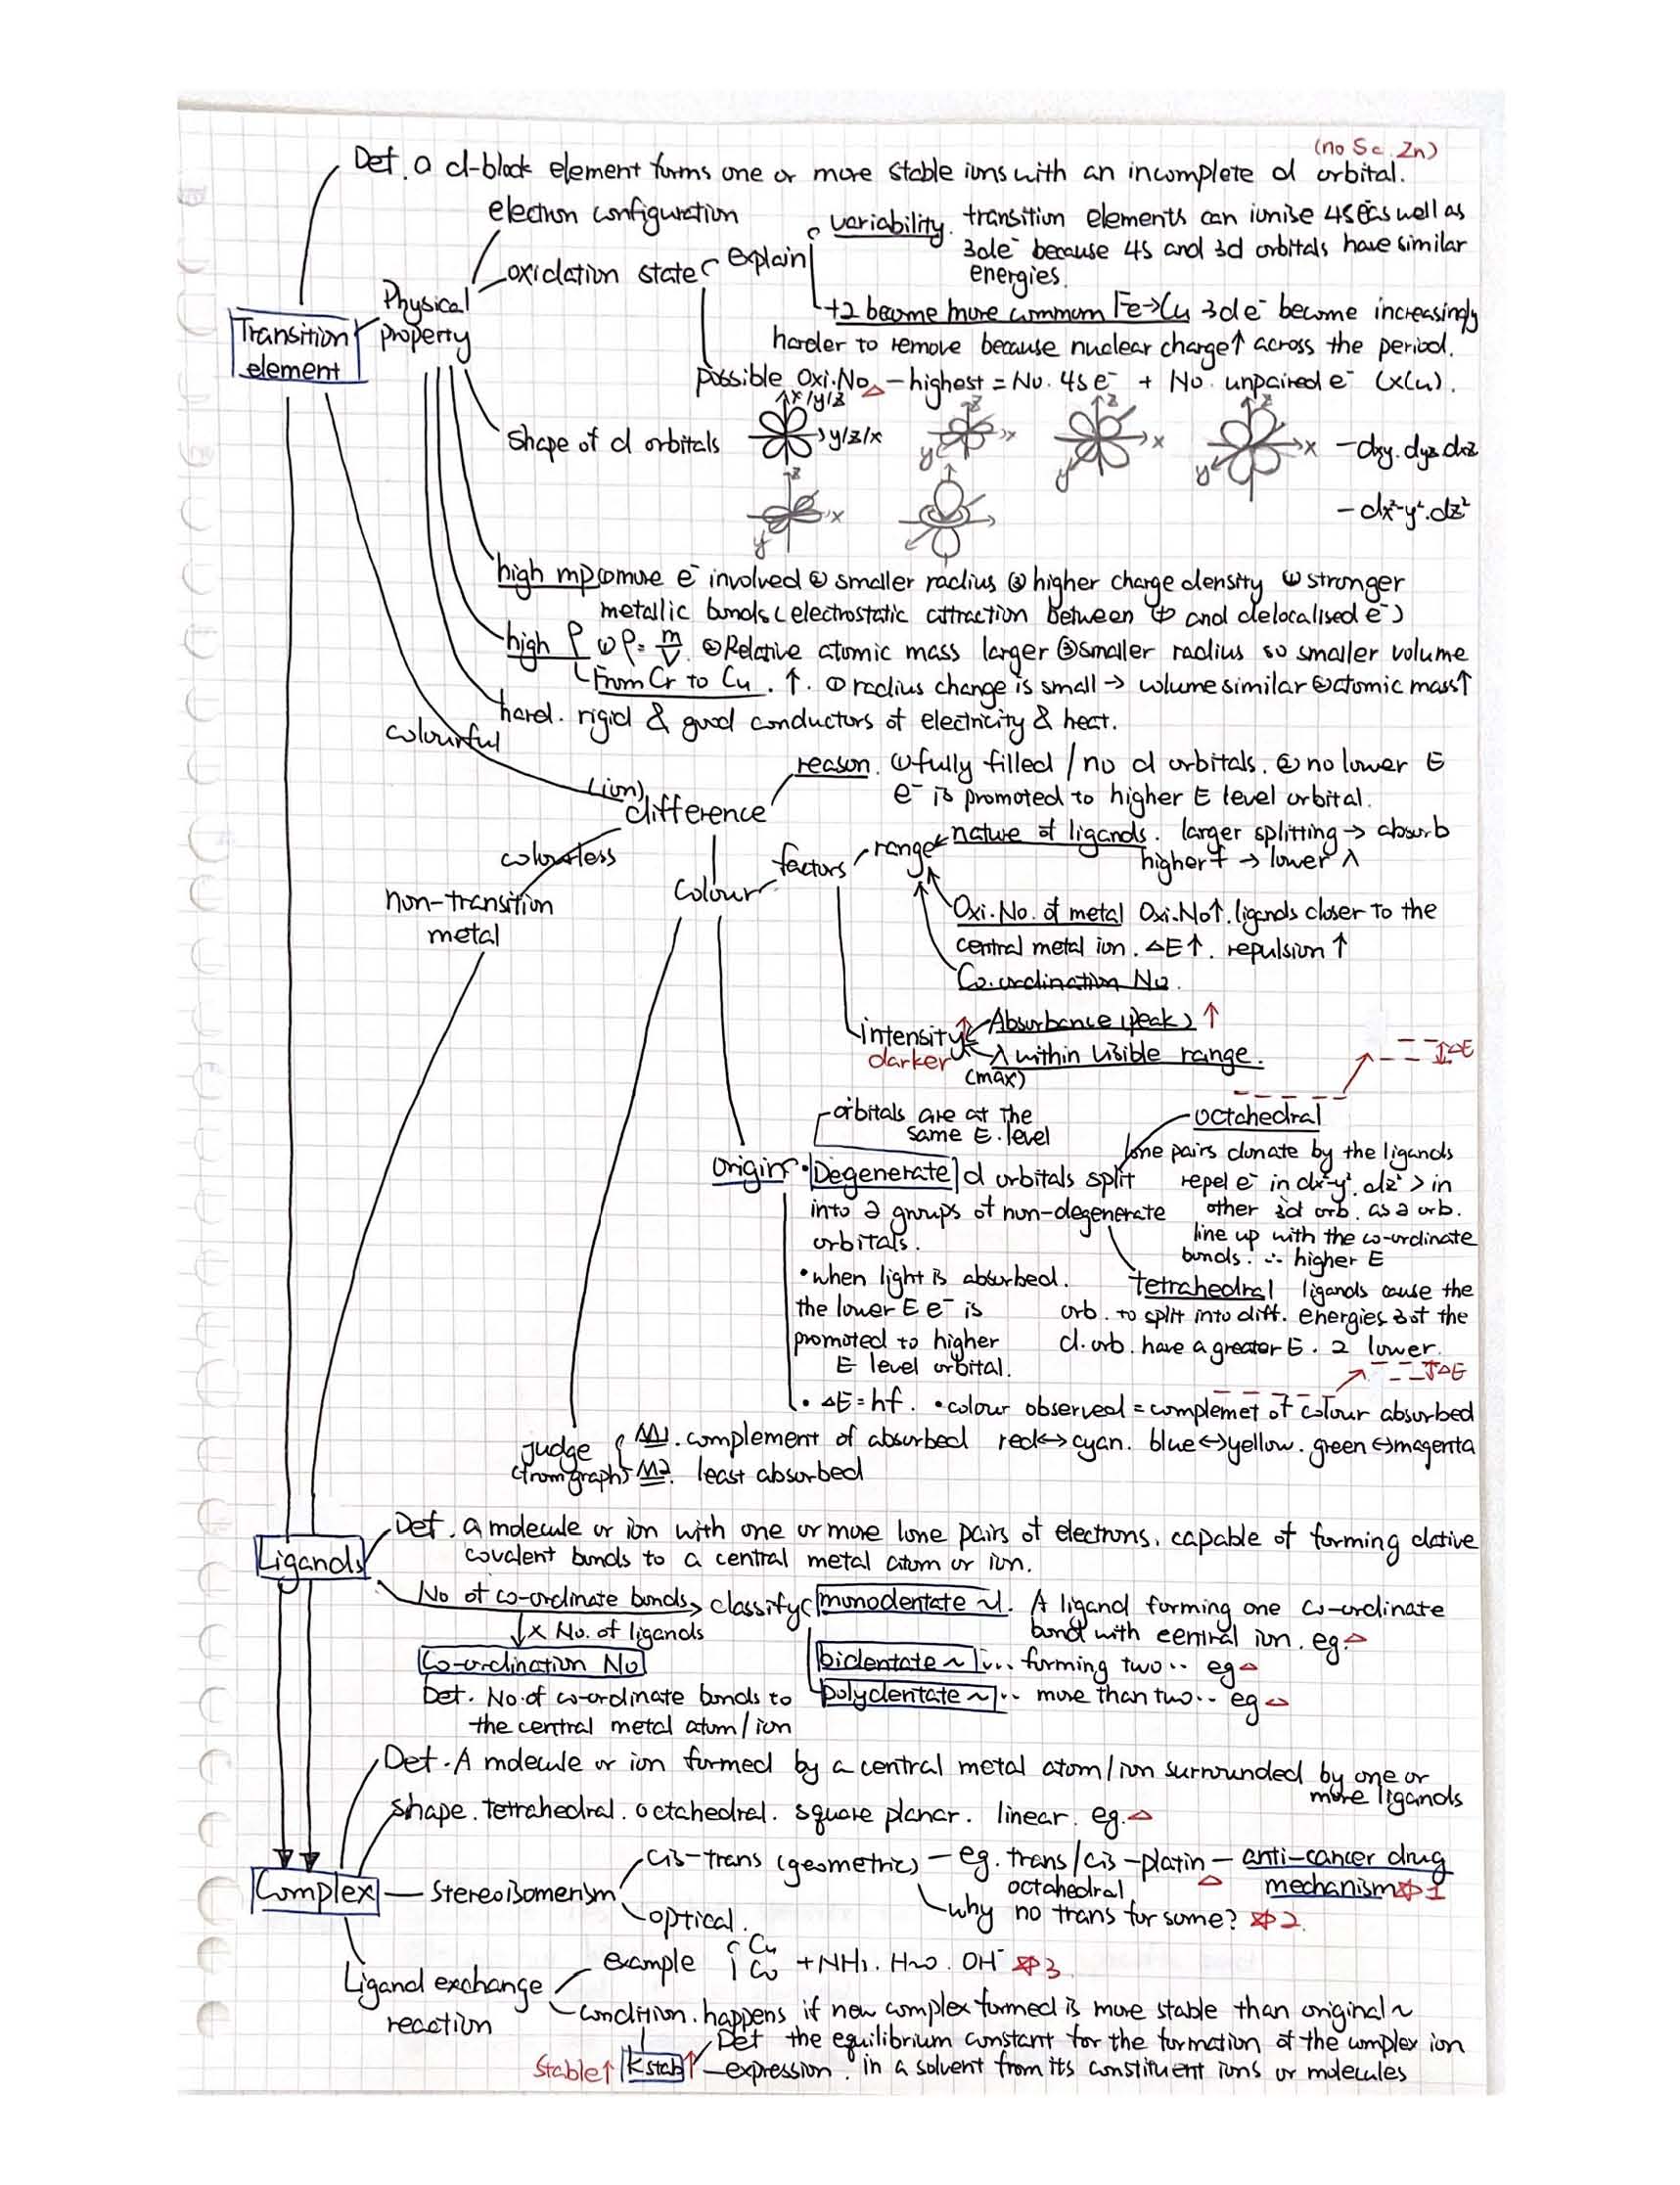 (no Sc. Zn)
Def. a d-block element forms one or more stable ions with an incomplete d orbital.
electron configuration
oxidation state
explain
variability. transition elements can ionise 4s e⁻ as well as
3d e⁻ because 4s and 3d orbitals have similar
energies.
+2 become more common Fe→Cu 3d e⁻ become increasingly
harder to remove because nuclear charge↑ across the period.
possible Oxi.No△ – highest = No. 4s e⁻ + No. unpaired e⁻ (×Cu).
Physical
property
Transition
element
shape of d orbitals
x/y/z
y/z/x
z
x
y
z
x
y
z
x
y
– dxy. dyz. dxz
z
x
y
– dx²-y². dz²
high mp ①more e⁻ involved ② smaller radius ③ higher charge density ④ stronger
metallic bonds (electrostatic attraction between ⊕ and delocalised e⁻)
high ρ ① ρ = m/V ②Relative atomic mass larger ③smaller radius so smaller volume
From Cr to Cu. ↑. ① radius change is small → volume similar ②atomic mass↑
hard. rigid & good conductors of electricity & heat.
colourful
(ion)
difference
reason. ①fully filled / no d orbitals. ② no lower E
e⁻ is promoted to higher E level orbital.
colourless
non-transition
metal
colour
factors
range
nature of ligands. larger splitting → absorb
higher f → lower λ
Oxi.No. of metal Oxi.No↑. ligands closer to the
central metal ion. △E↑. repulsion ↑
Co-ordination No.
intensity↑
darker
Absorbance (peak) ↑
λ within visible range.
(max)
△E
orbitals are at the
same E. level
origin
• Degenerate d orbitals split
into 2 groups of non-degenerate
orbitals.
• when light is absorbed.
the lower E e⁻ is
promoted to higher
E level orbital.
octahedral
lone pairs donate by the ligands
repel e⁻ in dx²-y². dz² > in
other 3d orb. as 2 orb.
line up with the co-ordinate
bonds. ∴ higher E
tetrahedral ligands cause the
orb. to split into diff. energies 3 of the
d. orb. have a greater E. 2 lower.
△E
• △E = hf. • colour observed = complemet of colour absorbed
judge
(from graph)
M1. complement of absorbed red↔cyan. blue↔yellow. green↔magenta
M2. least absorbed
Ligands
Def. a molecule or ion with one or more lone pairs of electrons. capable of forming dative
covalent bonds to a central metal atom or ion.
No of co-ordinate bonds → classify
monodentate ~. A ligand forming one co-ordinate
bond with central ion. eg.△
× No. of ligands
Co-ordination No
bidentate ~ ... forming two.. eg△
Det. No. of co-ordinate bonds to
the central metal atom/ion
polydentate ~ .. more than two.. eg△
Def. A molecule or ion formed by a central metal atom/ion surrounded by one or
more ligands
shape. tetrahedral. octahedral. square planar. linear. eg.△
Complex
stereoisomerism
cis-trans (geometric) – eg. trans/cis-platin△ – anti-cancer drug
mechanism ☆1
octahedral
why no trans for some? ☆2.
optical.
Ligand exchange
reaction
example Cu
Co + NH₃. H₂O. OH⁻ ☆3
condition. happens if new complex formed is more stable than original ~
Stable↑ Kstab↑
Def the equilibrium constant for the formation of the complex ion
expression. in a solvent from its constituent ions or molecules